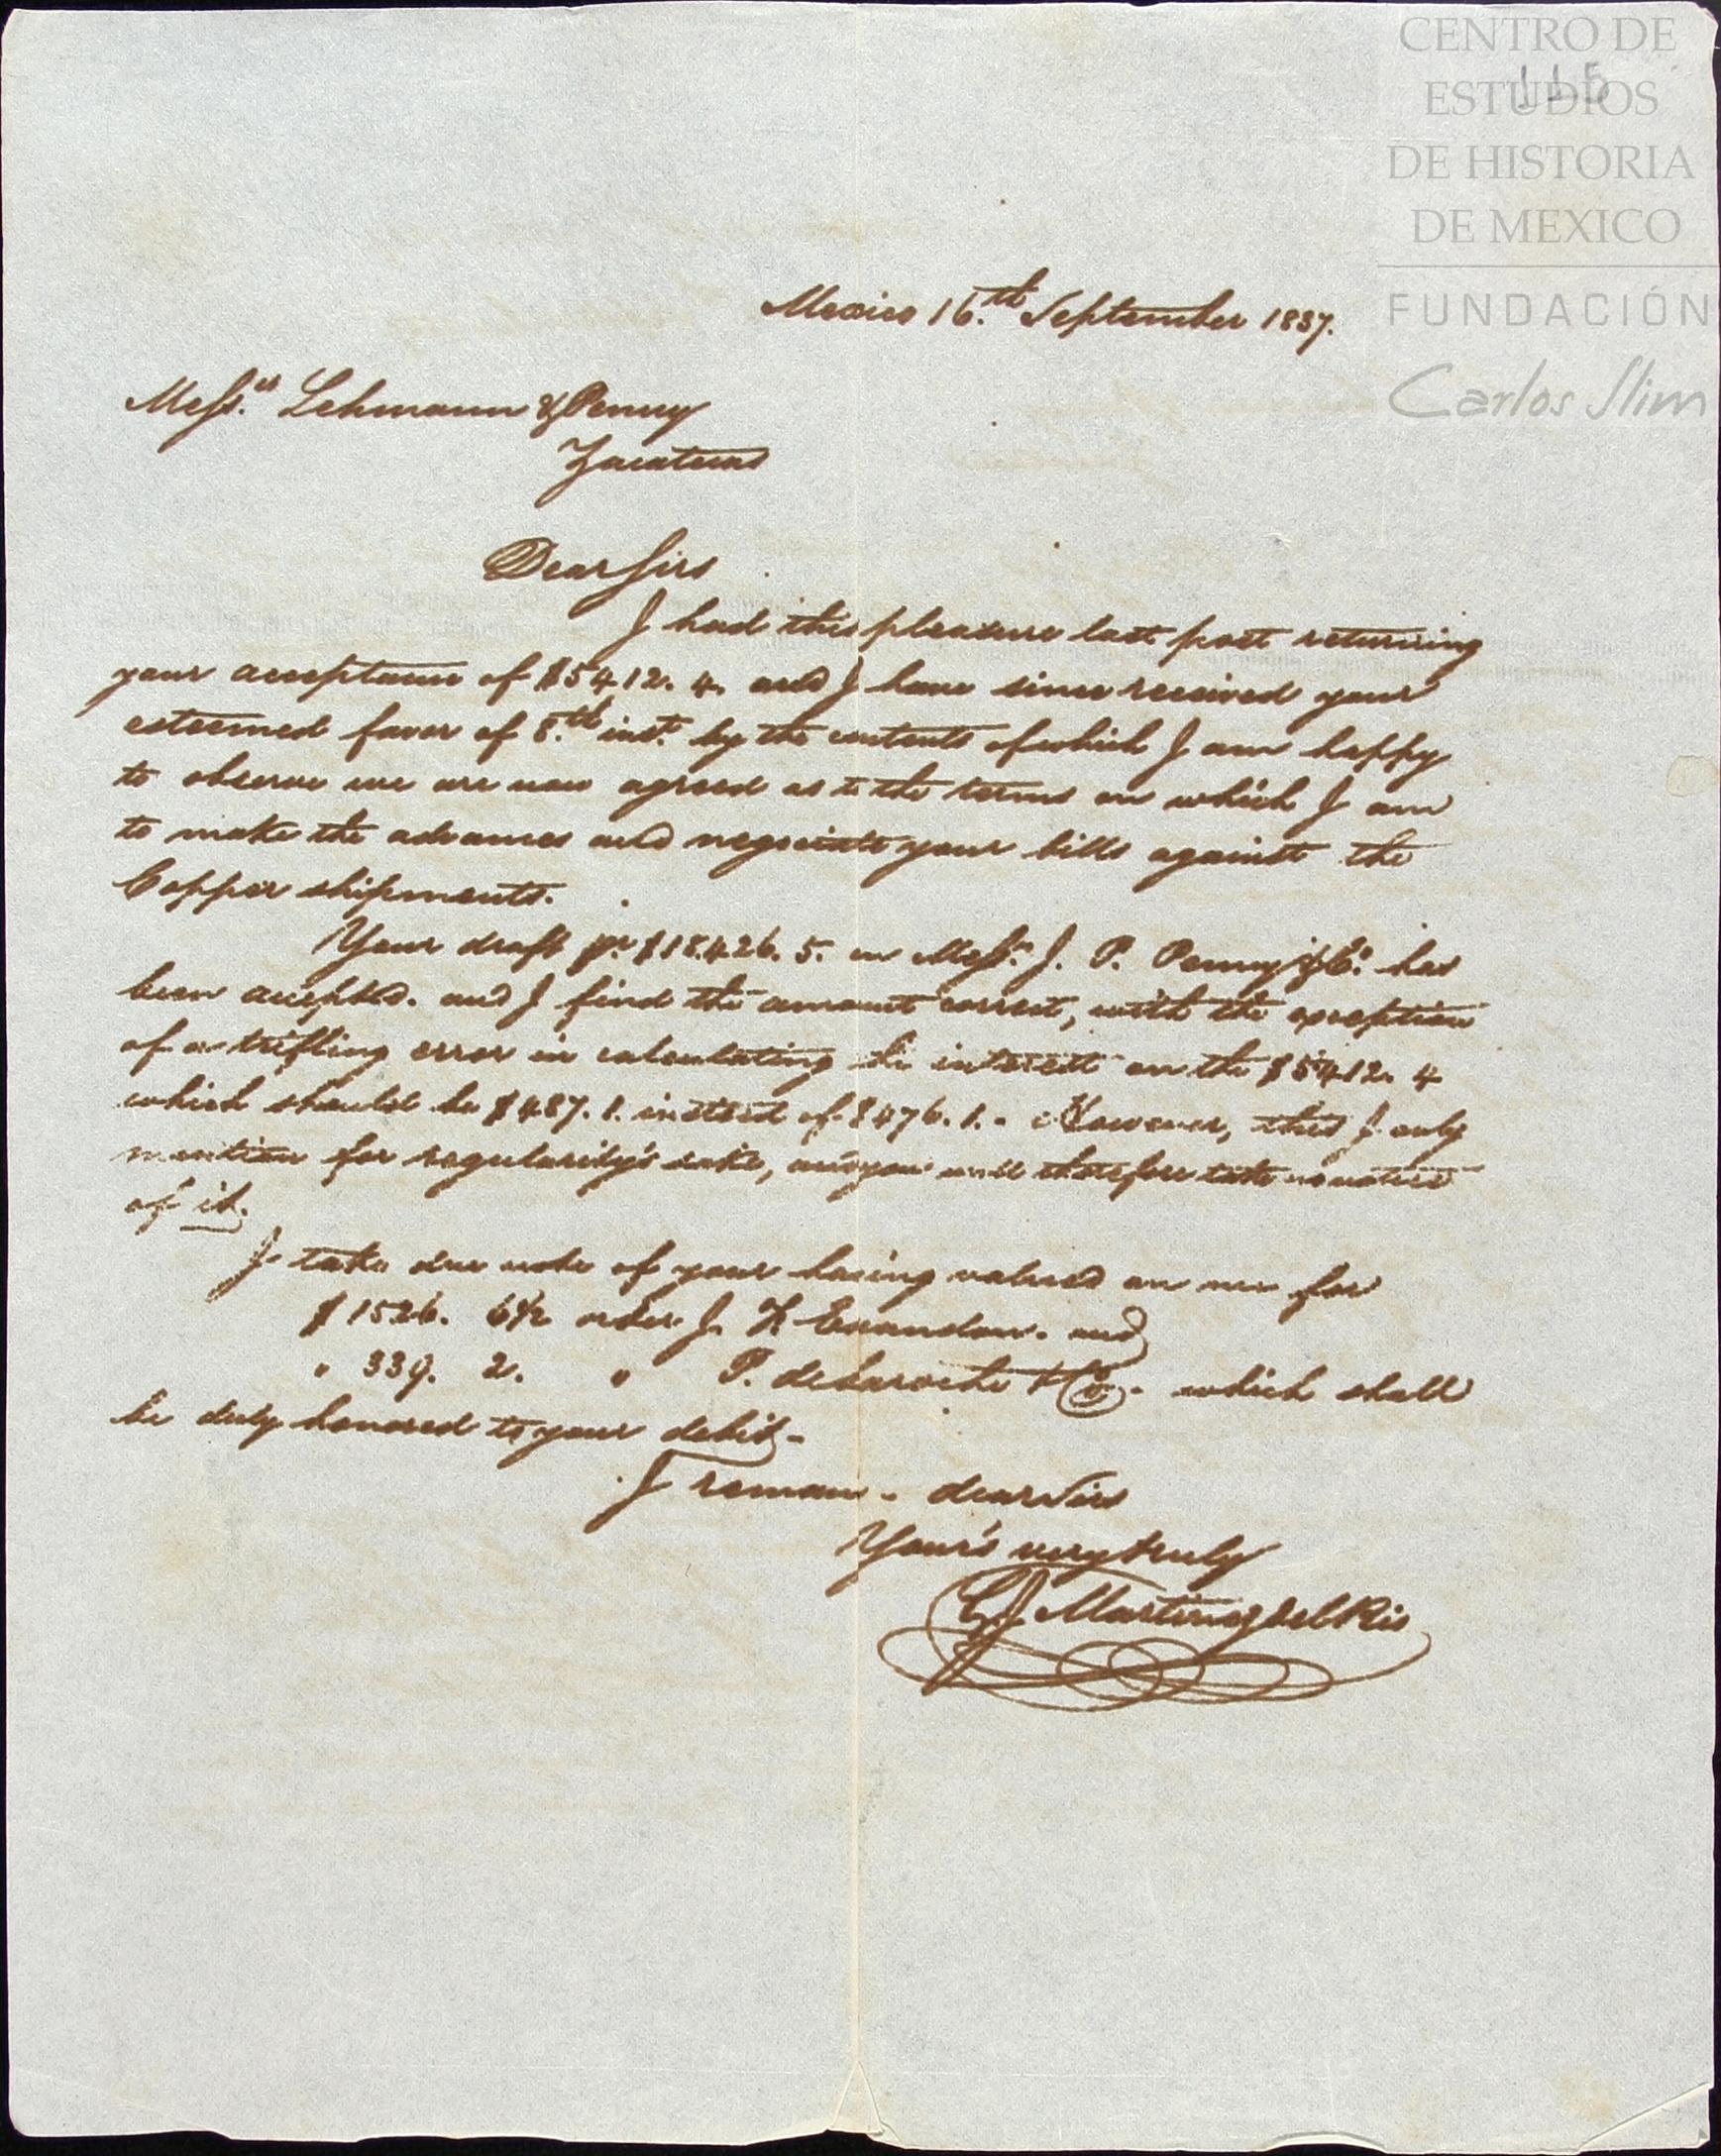 CENTRO DE
ESTUDIOS
DE HISTORIA
DE MEXICO
FUNDACIÓN
Carlos Slim
115
Mexico 16.th September 1837.
Mess.rs Lehmann & Penny
Zacatecas
Dear Sirs
I had this pleasure last post returning
your acceptance of $5412. 4. and I have since received your
esteemed favor of 8.th inst. by the contents of which I am happy
to observe we are now agreed as to the terms on which I am
to make the advances and negociate your bills against the
Copper shipments.
Your draft pr. $18.426. 5. on Mess.rs J. P. Penny & Co. has
been accepted. and I find the amount correct, with the exception
of a trifling error in calculating the interest on the $5412. 4
which should be $487. 1. instead of $476. 1. - However, this I only
mention for regularity's sake, and you will therefore take no notice
of it.
I take due note of your having valued on me for
$1526. 6½ order J. Escandon. and
" 339. 2. " P. deLaroche & Co. - which shall
be duly honored to your debit -
I remain - dear Sirs
Your's very truly
Martinez del Rio